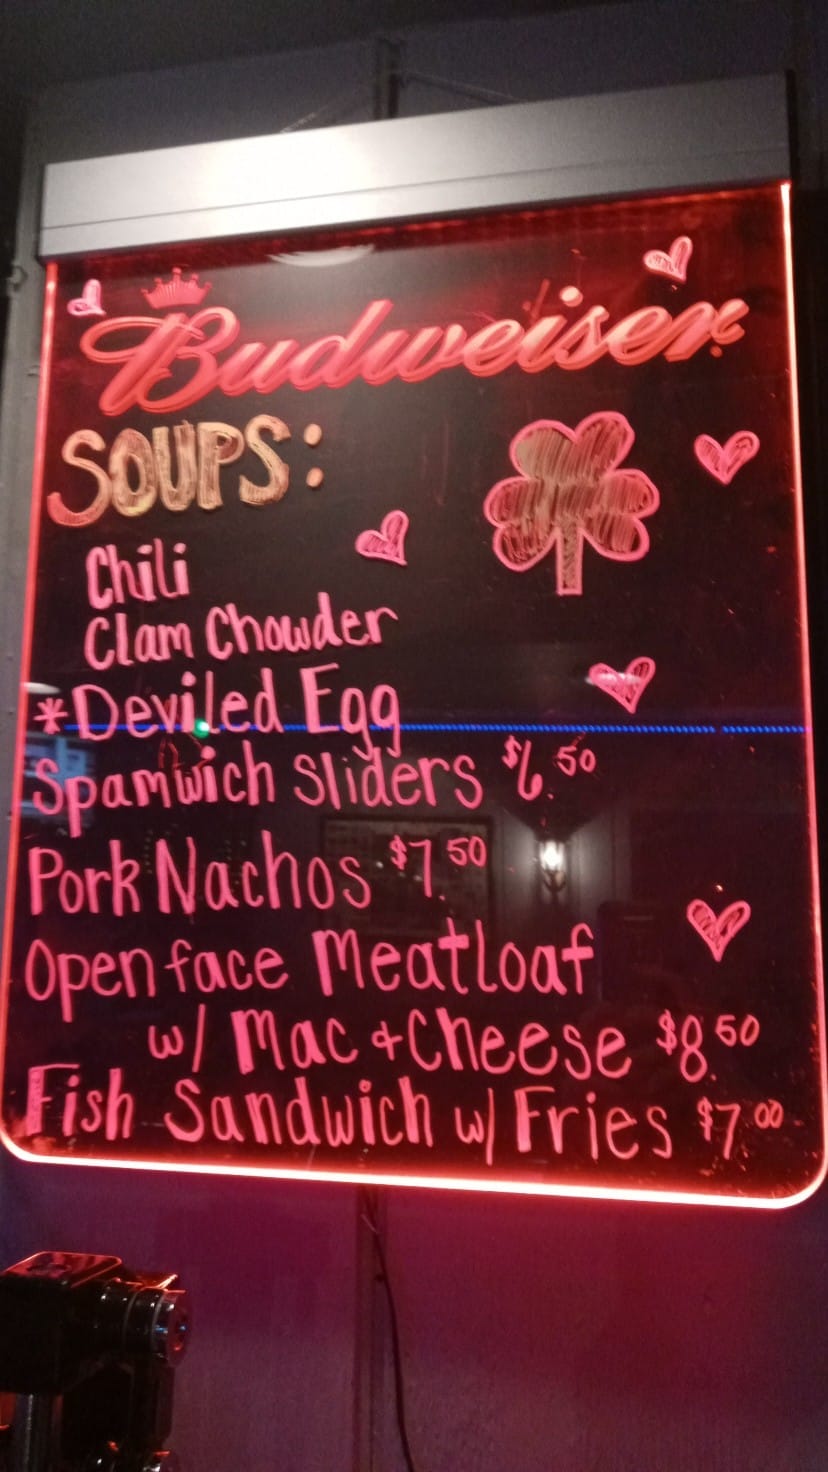 Budweiser
SOUPS:
Chili
Clam Chowder
*Deviled Egg
Spamwich Sliders $6.50
Pork Nachos $7.50
Open face Meatloaf
w/ Mac + Cheese $8.50
Fish Sandwich w/ Fries $7.00